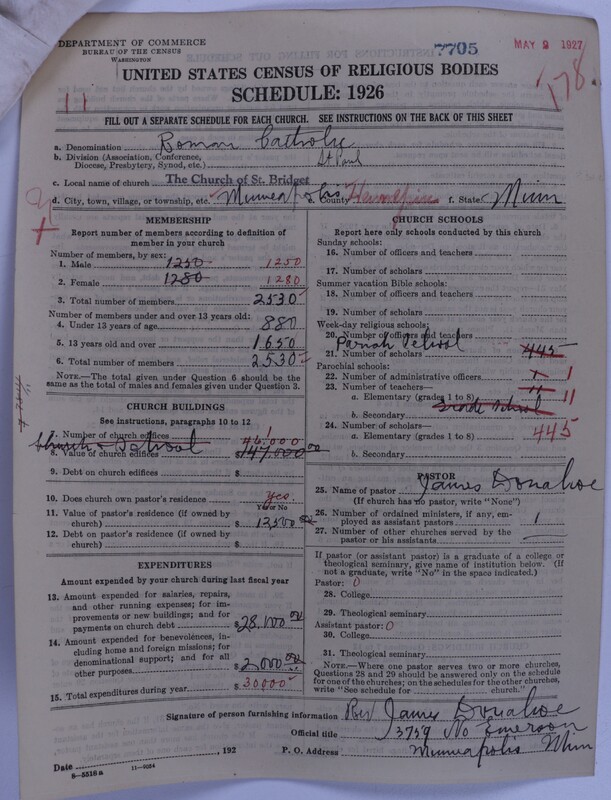 DEPARTMENT OF COMMERCE
BUREAU OF THE CENSUS
WASHINGTON
7705
MAY 2 1927
178
UNITED STATES CENSUS OF RELIGIOUS BODIES
SCHEDULE: 1926
11
FILL OUT A SEPARATE SCHEDULE FOR EACH CHURCH. SEE INSTRUCTIONS ON THE BACK OF THIS SHEET
a. Denomination Roman Catholic
b. Division (Association, Conference, Diocese, Presbytery, Synod, etc.) St Paul
c. Local name of church The Church of St. Bridget
d. City, town, village, or township, etc. Minneapolis e. County Hennepin f. State Minn
MEMBERSHIP
Report number of members according to definition of member in your church
Number of members, by sex:
1. Male 1250 1250
2. Female 1280 1280
3. Total number of members 2530
Number of members under and over 13 years old:
4. Under 13 years of age 880
5. 13 years old and over 1650
6. Total number of members 2530
NOTE.—The total given under Question 6 should be the same as the total of males and females given under Question 3.
CHURCH BUILDINGS
See instructions, paragraphs 10 to 12
7. Number of church edifices
Church & School
8. Value of church edifices $147,000.00
9. Debt on church edifices $
10. Does church own pastor's residence Yes
Yes or No
11. Value of pastor's residence (if owned by church) $ 13,500
12. Debt on pastor's residence (if owned by church) $
EXPENDITURES
Amount expended by your church during last fiscal year
13. Amount expended for salaries, repairs, and other running expenses; for improvements or new buildings; and for payments on church debt $28,000
14. Amount expended for benevolences, including home and foreign missions; for denominational support; and for all other purposes $2,000
15. Total expenditures during year $30000
CHURCH SCHOOLS
Report here only schools conducted by this church
Sunday schools:
16. Number of officers and teachers
17. Number of scholars
Summer vacation Bible schools:
18. Number of officers and teachers
19. Number of scholars
Week-day religious schools:
20. Number of officers and teachers
Parish School
21. Number of scholars 445
Parochial schools:
22. Number of administrative officers 1
23. Number of teachers—
a. Elementary (grades 1 to 8) 11
Grade School
b. Secondary
24. Number of scholars—
a. Elementary (grades 1 to 8) 445
b. Secondary
PASTOR
25. Name of pastor James Donahoe
(If church has no pastor, write "None")
26. Number of ordained ministers, if any, employed as assistant pastors 1
27. Number of other churches served by the pastor or his assistants
If pastor (or assistant pastor) is a graduate of a college or theological seminary, give name of institution below. (If not a graduate, write "No" in the space indicated.)
Pastor: 0
28. College
29. Theological seminary
Assistant pastor: 0
30. College
31. Theological seminary
NOTE.—Where one pastor serves two or more churches, Questions 28 and 29 should be answered only on the schedule for one of the churches; on the schedules for the other churches, write "See schedule for church."
Signature of person furnishing information Rev James Donahoe
Official title 3759 No Emerson
P. O. Address Minneapolis Minn
Date , 192
8—5516a 11—9054